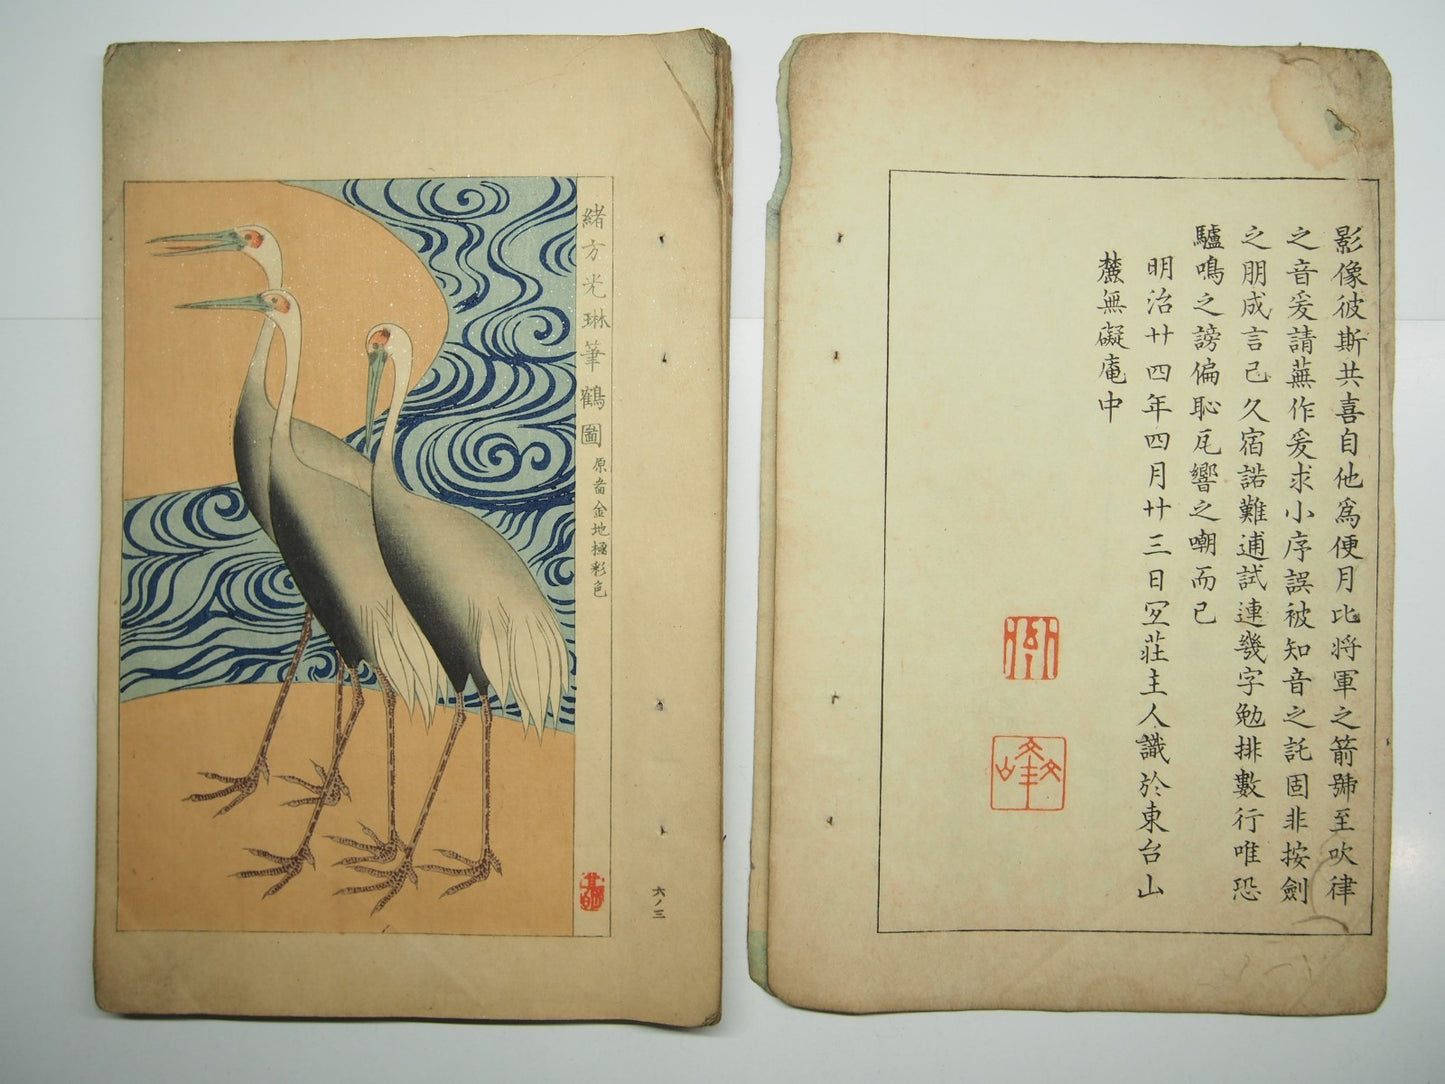 影像彼斯共喜自他為便月比將軍之箭號至吹律
之音爰請蕪作爰求小序誤被知音之託固非按劍
之朋成言己久宿諾難逋試連幾字勉排數行唯恐
驢鳴之謗偏恥瓦響之嘲而已
明治廿四年四月廿三日 莊主人識於東台山
麓無礙庵中
緒方光琳筆鶴圖 原畵金地極彩色
六ノ三